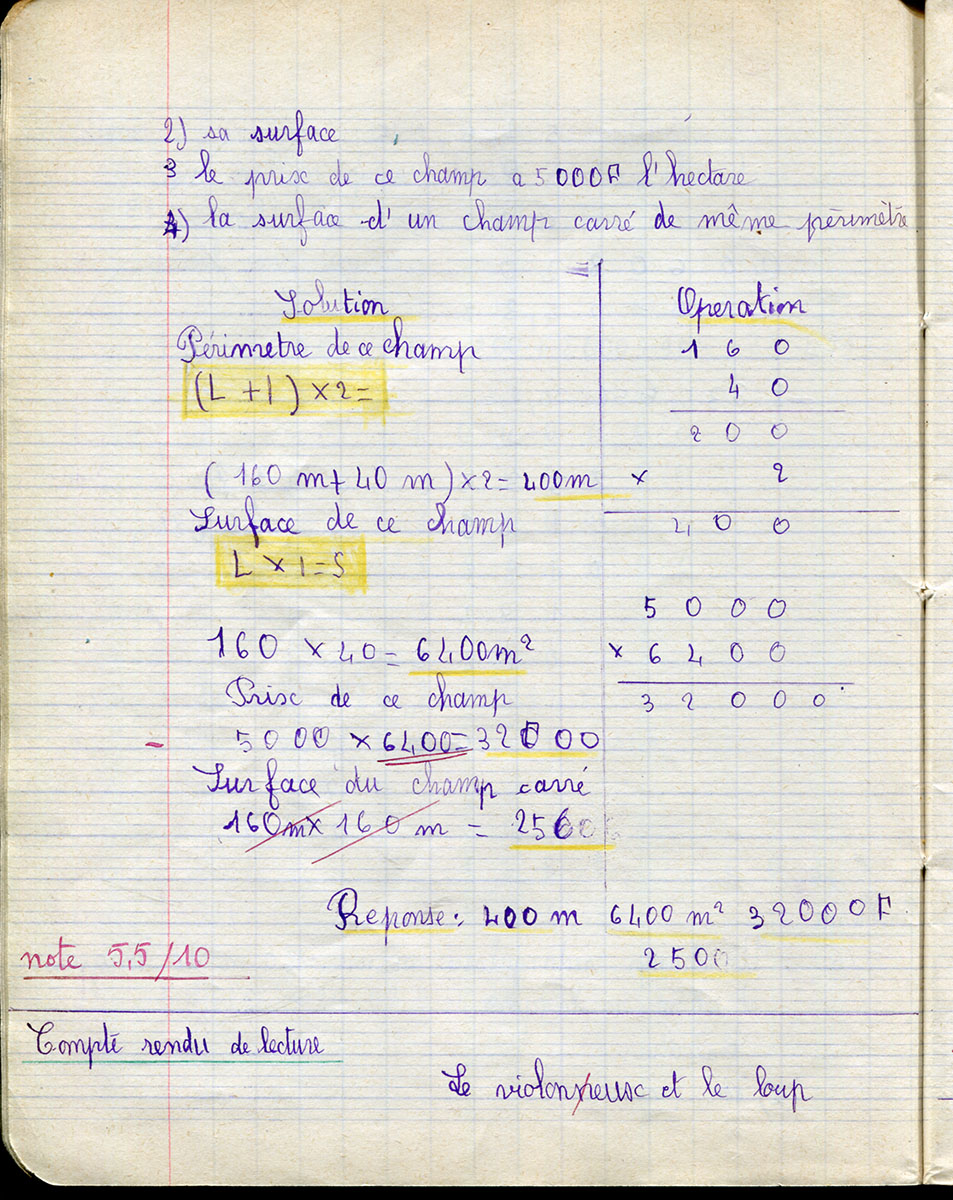 2) sa surface
3 le prix de ce champ a 5000F l'hectare
4) la surface d'un champ carré de même périmètre
Solution
Périmetre de ce champ
(L + l) × 2 =
(160 m + 40 m) × 2 = 400m
Surface de ce champ
L × l = S
160 × 40 = 6400m²
Prix de ce champ
5000 × 6400 = 32000
Surface du champ carré
160m × 160 m =
Operation
160
40
200
× 2
400
5000
× 6400
32000
Reponse : 400 m 6400 m² 32000F
2500
note 5,5/10
Compte rendu de lecture
Le violonneux et le loup